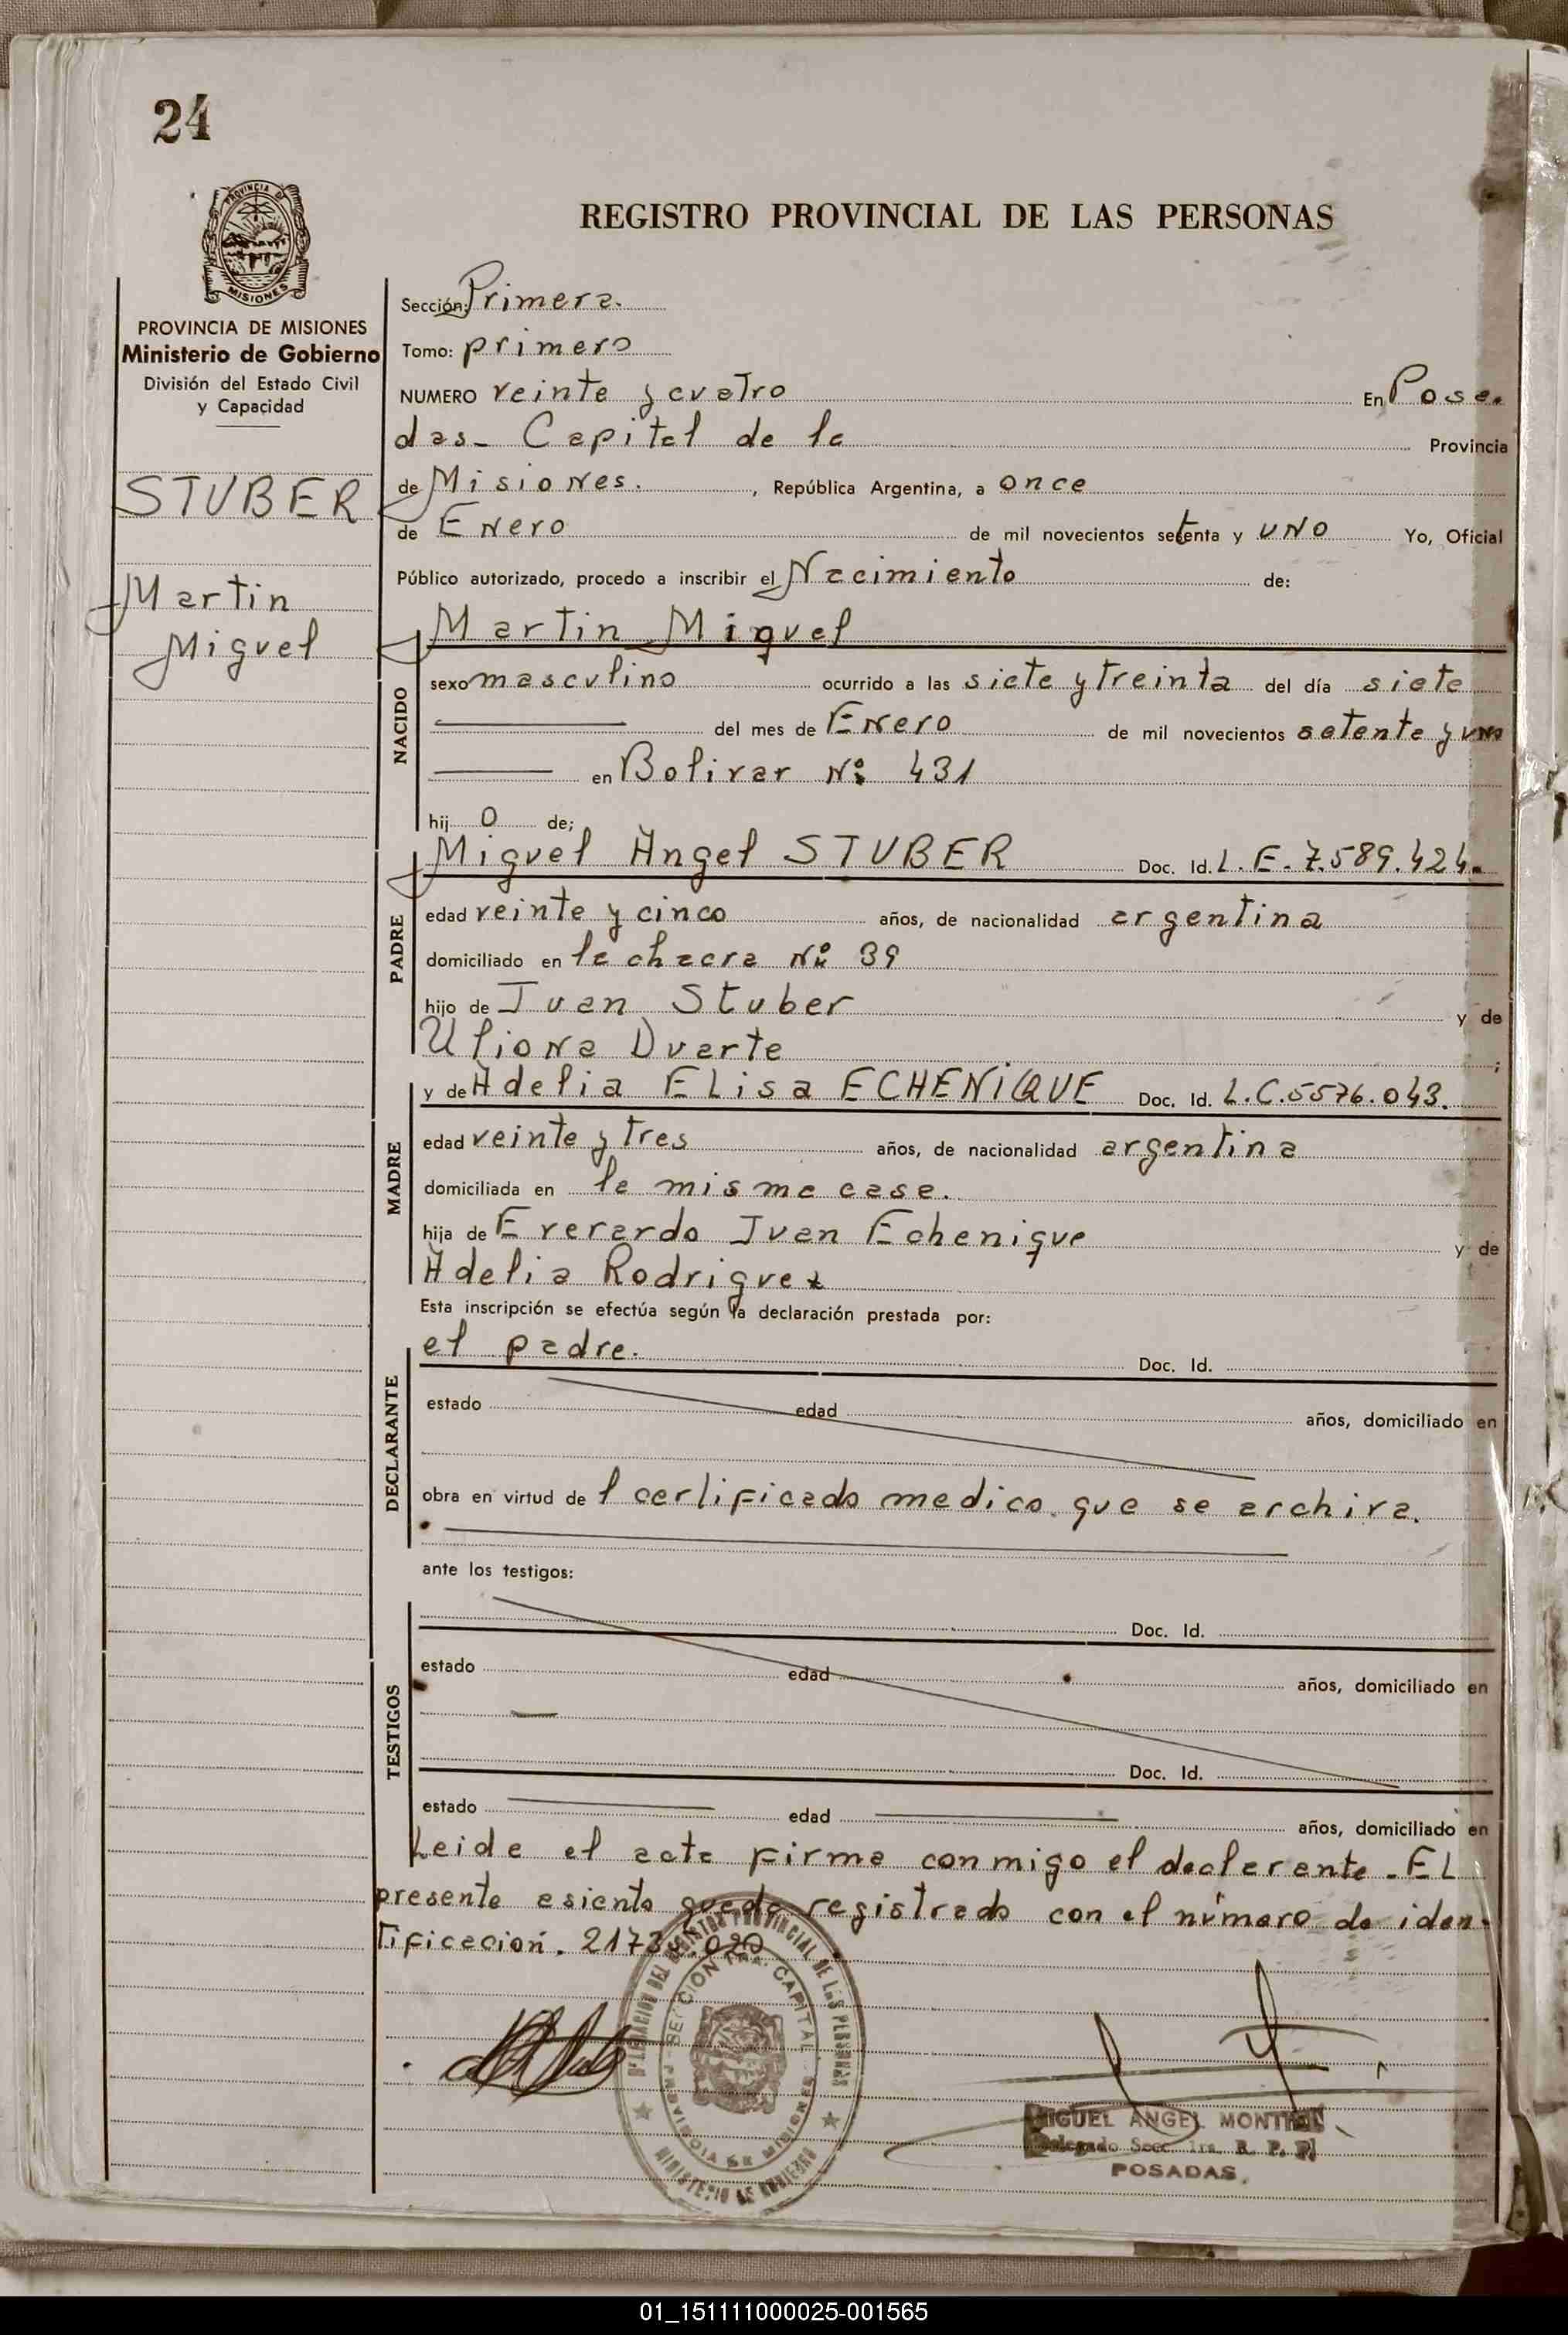 24
PROVINCIA DE
MISIONES
REGISTRO PROVINCIAL DE LAS PERSONAS
PROVINCIA DE MISIONES
Ministerio de Gobierno
División del Estado Civil
y Capacidad
STUBER
Martin
Miguel
Sección: Primera.
Tomo: primero
NUMERO veinte y cuatro En Posa-
das- Capital de la Provincia
de Misiones. , República Argentina, a once
de Enero de mil novecientos setenta y uno Yo, Oficial
Público autorizado, procedo a inscribir el Nacimiento de:
Martin Miguel
NACIDO
sexo masculino ocurrido a las siete y treinta del día siete
del mes de Enero de mil novecientos setenta y uno
en Bolivar Nº 431
hij o de;
Miguel Angel STUBER Doc. Id. L.E. 7.589.424.
PADRE
edad veinte y cinco años, de nacionalidad argentina
domiciliado en la chacra Nº 39
hijo de Juan Stuber y de
Uliona Duarte ;
y de Adelia ELisa ECHENIQUE Doc. Id. L.C.5576.043.
MADRE
edad veinte y tres años, de nacionalidad argentina
domiciliada en la misma casa.
hija de Everardo Juan Echenique y de
Adelia Rodriguez
Esta inscripción se efectúa según la declaración prestada por:
el padre. Doc. Id.
DECLARANTE
estado edad años, domiciliado en
obra en virtud de l certificado medico que se archiva.
ante los testigos:
Doc. Id.
TESTIGOS
estado edad años, domiciliado en
Doc. Id.
estado edad años, domiciliado en
Leida el acta firma conmigo el declarante - EL
presente asiento queda registrado con el número de iden-
tificación.
DELEGACION DEL REGISTRO PROVINCIAL DE LAS PERSONAS
SECCION 1ra. CAPITAL
PROVINCIA DE MISIONES
MINISTERIO DE GOBIERNO
MIGUEL ANGEL
Delegado Secc. 1ra. R. P. P.
POSADAS.
01_151111000025-001565